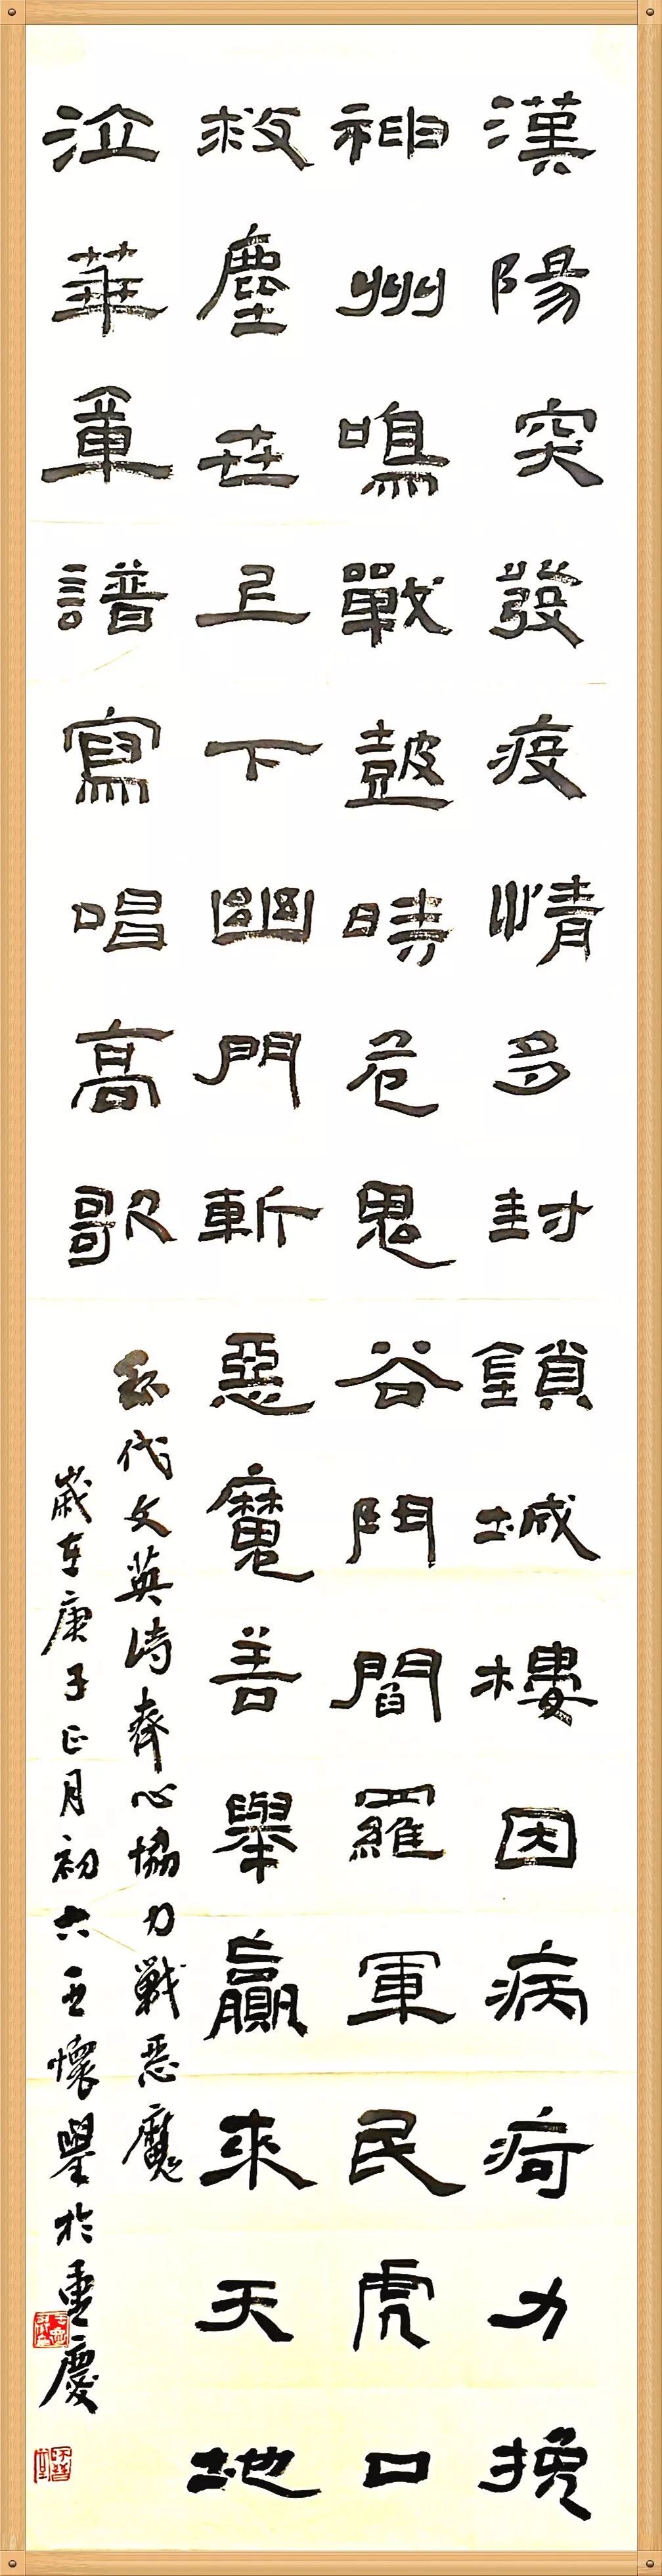 漢陽突發疫情多封鎖城樓因病疴力挽
神州鳴戰皷時危鬼谷鬥閻羅軍民虎口
救塵世下幽門斬惡魔善舉贏來天地
泣華章譜寫唱高歌
代文英詩齊心協力戰惡魔
歲在庚子正月初六王懷於重慶